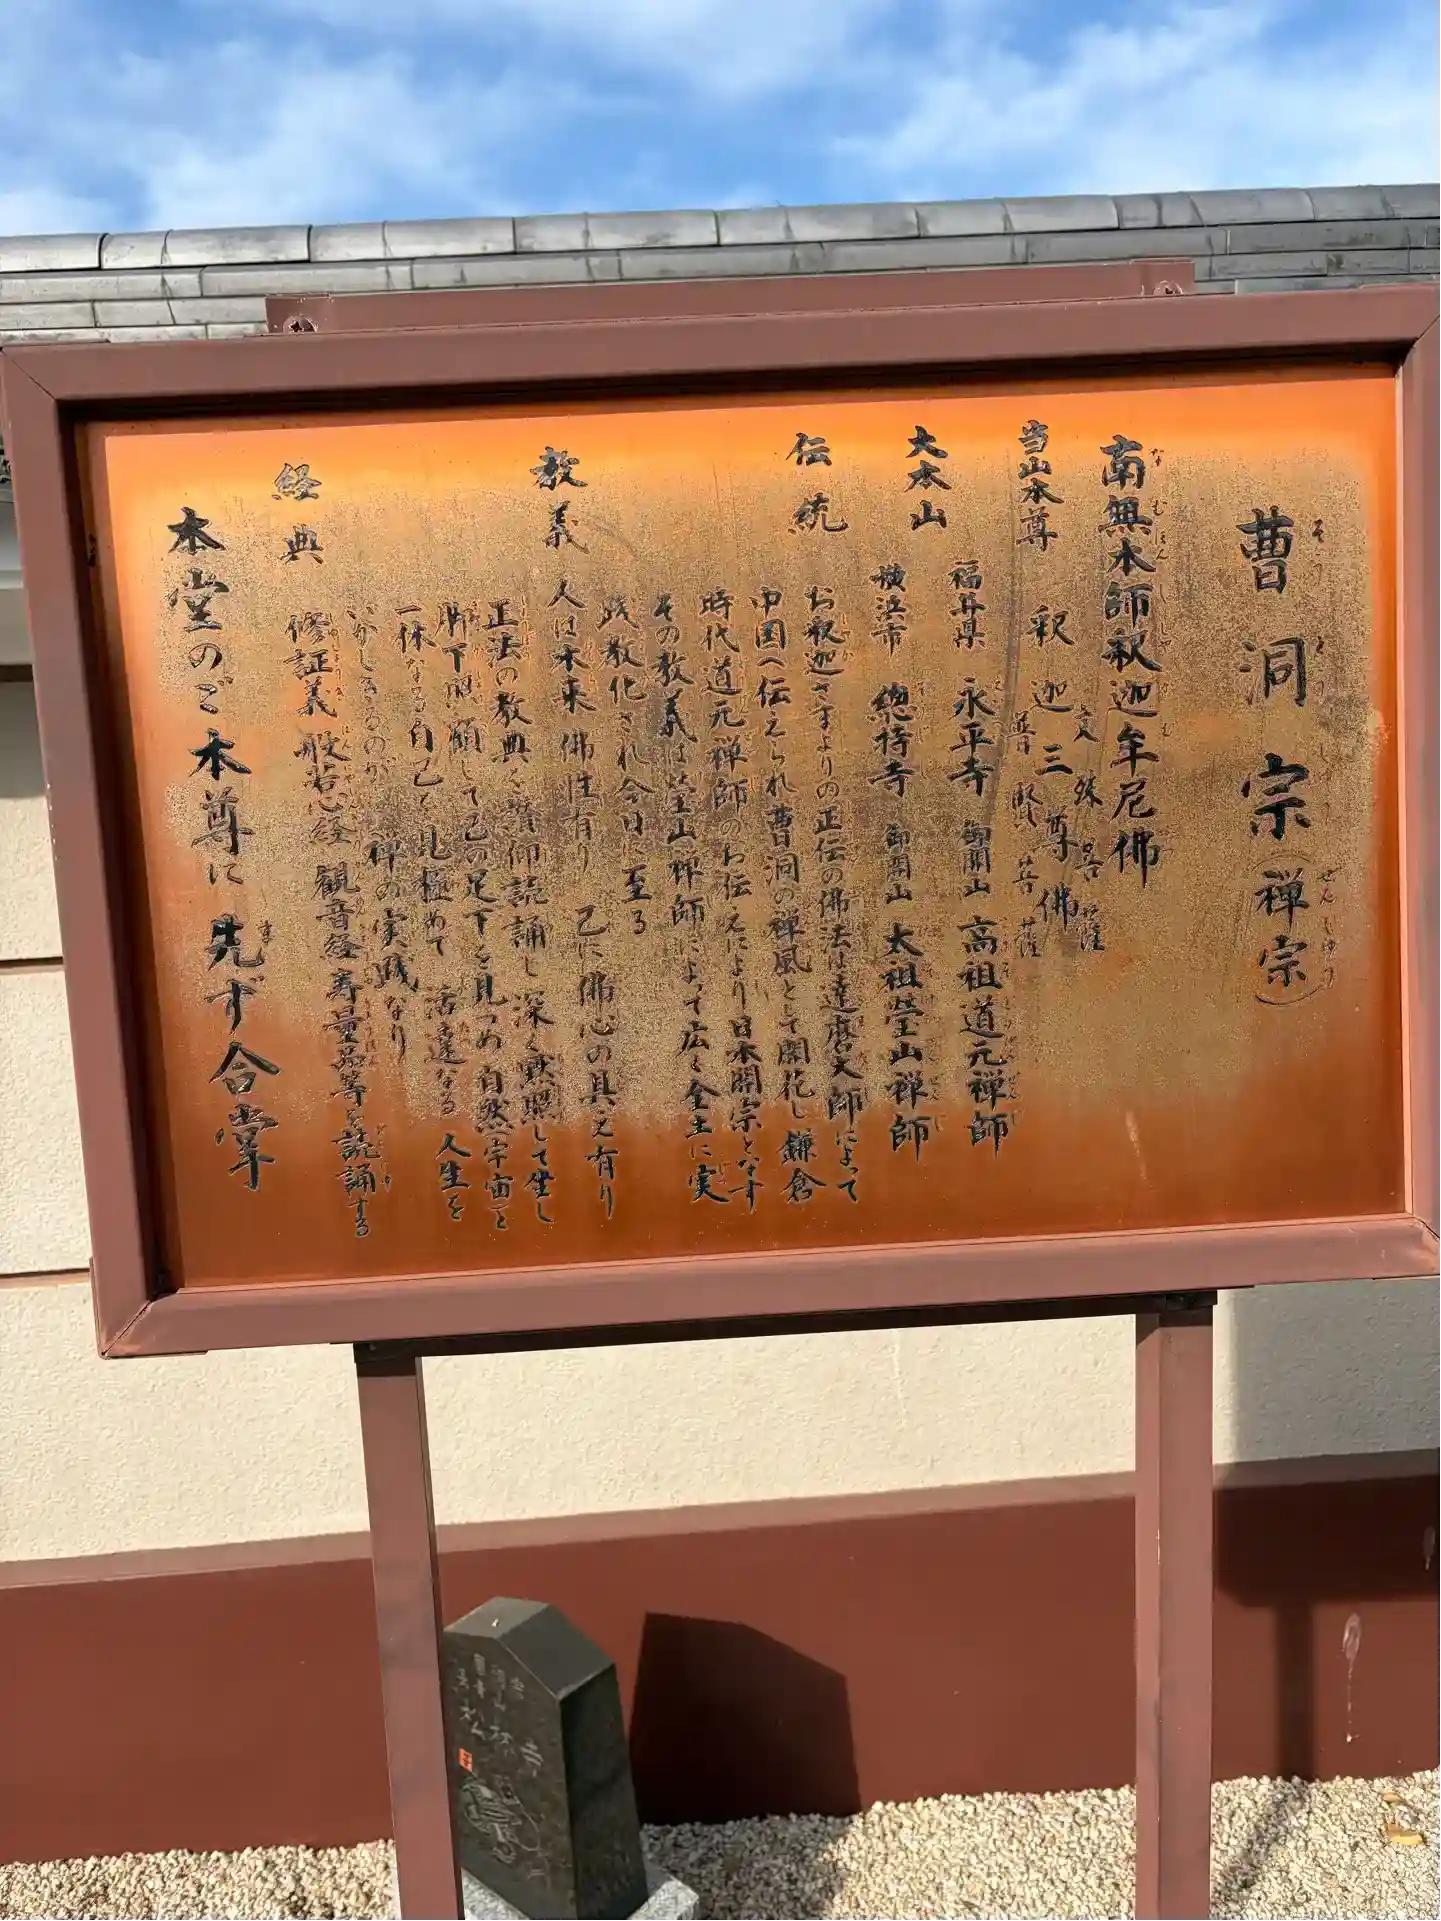 曹洞宗(禅宗)
南無本師釈迦牟尼佛
当山本尊 釈迦三尊佛
文殊菩薩
普賢菩薩
大本山 福井県 永平寺 御開山 高祖道元禅師
横浜市 總持寺 御開山 太祖瑩山禅師
伝統 お釈迦さまよりの正伝の佛法は達磨大師によって
中国へ伝えられ曹洞の禅風として開花し鎌倉
時代道元禅師のお伝えにより日本開宗となす
その教義は瑩山禅師によって広く全土に実
践教化され今日に至る
教義 人は本来佛性有り 己に佛心の具え有り
正法の教典を讃仰読誦し深く黙照して坐し
脚下照顧して己の足下を見つめ自然(宇宙)と
一体なる自己を見極めて 活達なる 人生を
いかしきるのが(禅の)実践なり
経典 修証義 般若心経 観音経 寿量品等を読誦する
本堂のご本尊に先ず合掌